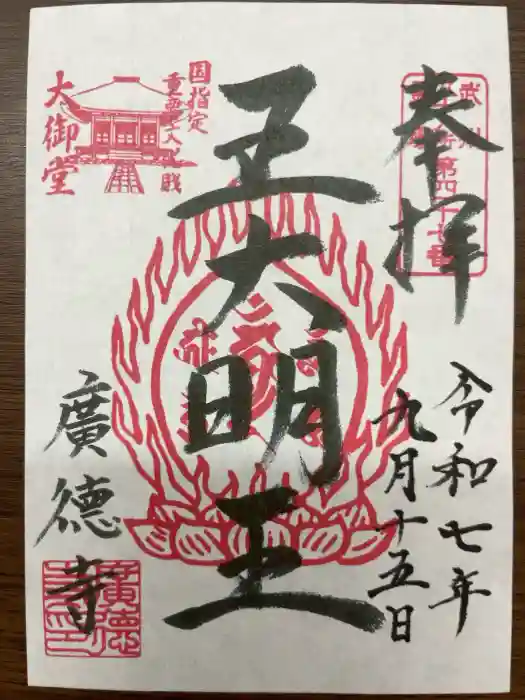 奉拝
武州
第四十七番
令和七年
九月十五日
五大明王
国指定
重要文化財
大御堂
廣德寺